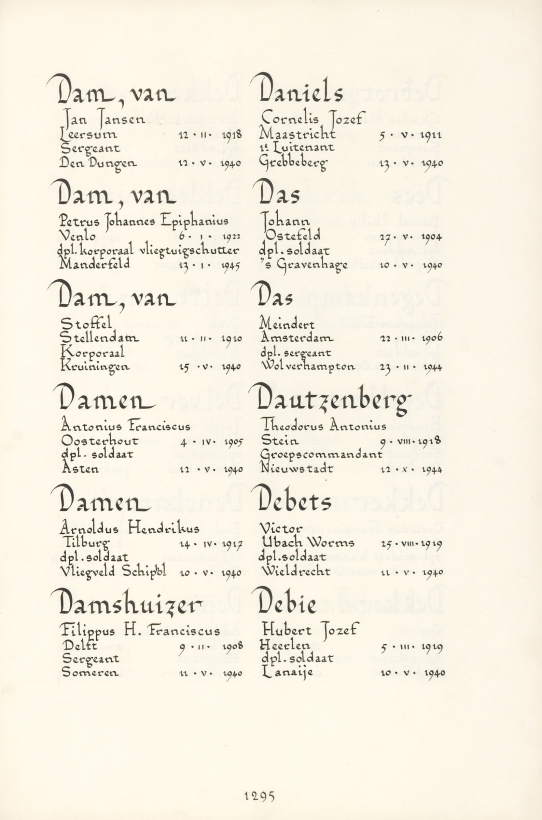 Dam, van
Jan Jansen
Leersum 12 · II · 1918
Sergeant
Den Dungen 12 · V · 1940
Dam, van
Petrus Johannes Epiphanius
Venlo 6 · I · 1922
dpl. korporaal vliegtuigschutter
Manderfeld 13 · I · 1945
Dam, van
Stoffel
Stellendam 11 · II · 1910
Korporaal
Kruiningen 15 · V · 1940
Damen
Antonius Franciscus
Oosterhout 4 · IV · 1905
dpl. soldaat
Asten 12 · V · 1940
Damen
Arnoldus Hendrikus
Tilburg 14 · IV · 1917
dpl. soldaat
Vliegveld Schiphol 10 · V · 1940
Damshuizer
Filippus H. Franciscus
Delft 9 · II · 1908
Sergeant
Someren 11 · V · 1940
Daniels
Cornelis Jozef
Maastricht 5 · V · 1911
1e Luitenant
Grebbeberg 13 · V · 1940
Das
Johann
Ostefeld 27 · V · 1904
dpl. soldaat
's Gravenhage 10 · V · 1940
Das
Meindert
Amsterdam 22 · III · 1906
dpl. sergeant
Wolverhampton 23 · II · 1944
Dautzenberg
Theodorus Antonius
Stein 9 · VIII · 1918
Groepscommandant
Nieuwstadt 12 · X · 1944
Debets
Victor
Ubach Worms 25 · VIII · 1919
dpl. soldaat
Wieldrecht 11 · V · 1940
Debie
Hubert Jozef
Heerlen 5 · III · 1919
dpl. soldaat
Lanaije 10 · V · 1940
1295